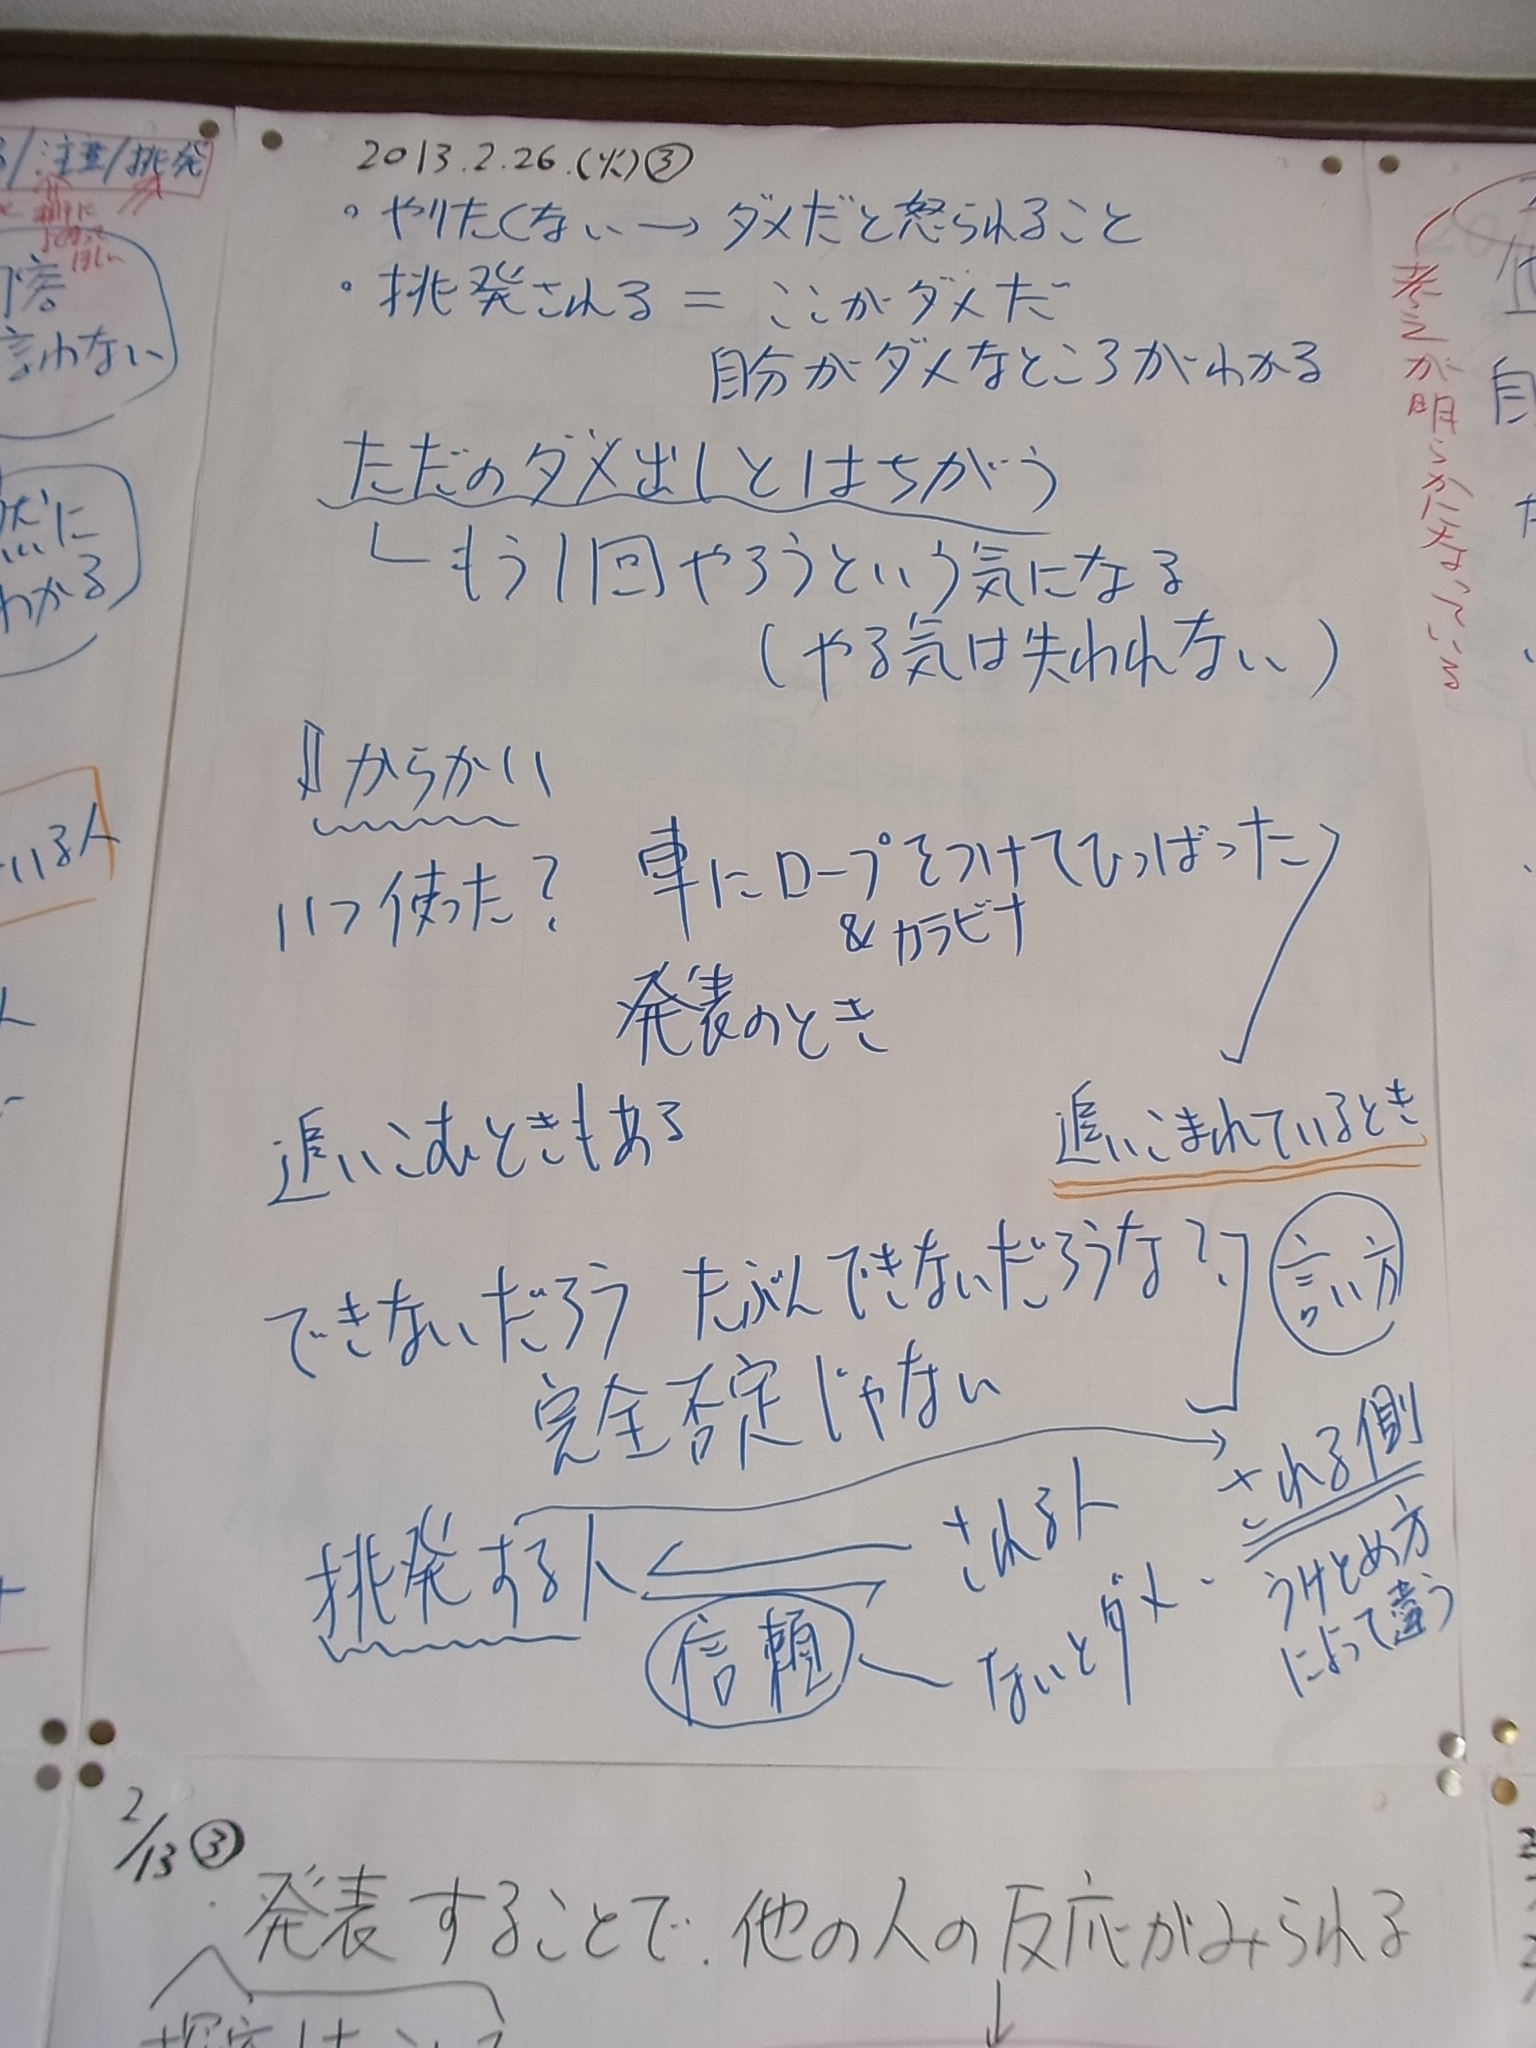 2013.2.26.(火)③
・やりたくない→ダメだと怒られること
・挑発される=ここがダメだ
自分がダメなところがわかる
ただのダメ出しとはちがう
もう1回やろうという気になる
(やる気は失われない)
⇓からかい
いつ使った? 車にロープをつけてひっぱった
&カラビナ
発表のとき
追いこむときもある
追いこまれているとき
できないだろう たぶんできないだろうな?
言い方
完全否定じゃない
挑発する人
される人
される側
うけとめ方
によって違う
信頼
ないとダメ
2/13③
発表することで、他の人の反応がみられる
/注意/挑発
言わない
然に
わかる
いる人
考えが明らかになっている
自